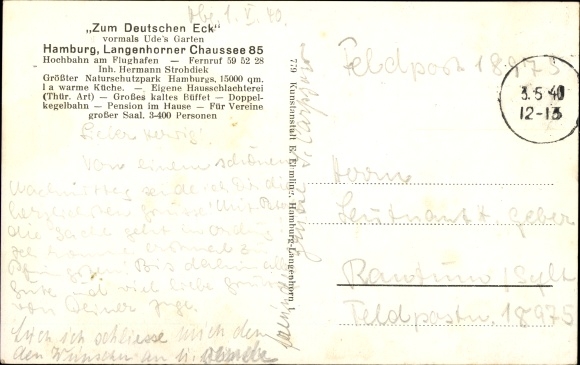 Hbg. 1. V. 40.
„Zum Deutschen Eck"
vormals Ude's Garten
Hamburg, Langenhorner Chaussee 85
Hochbahn am Flughafen — Fernruf 59 52 28
Inh. Hermann Strohdiek
Größter Naturschutzpark Hamburgs, 15000 qm.
1 a warme Küche. — Eigene Hausschlachterei
(Thür. Art) — Großes kaltes Büffet — Doppel-
kegelbahn — Pension im Hause — Für Vereine
großer Saal, 3-400 Personen
Lieber
Von einem schönen
Nachmittag sende ich Dir die
herzlichsten Grüsse. Mit
die Sache geht in Ordnung
Ich komme
Pfingsten. Bis dahin alles
Gute und viel liebe Grüsse
von Deiner Inge.
Auch ich schliesse mich den
den Wünschen an
779 Kunstanstalt E. Ermling, Hamburg-Langenhorn 1
Feldpost 18975
3.5.40
12-13
Herrn
Leutnant H. Geber
Rantum / Sylt
Feldpostnr. 18975